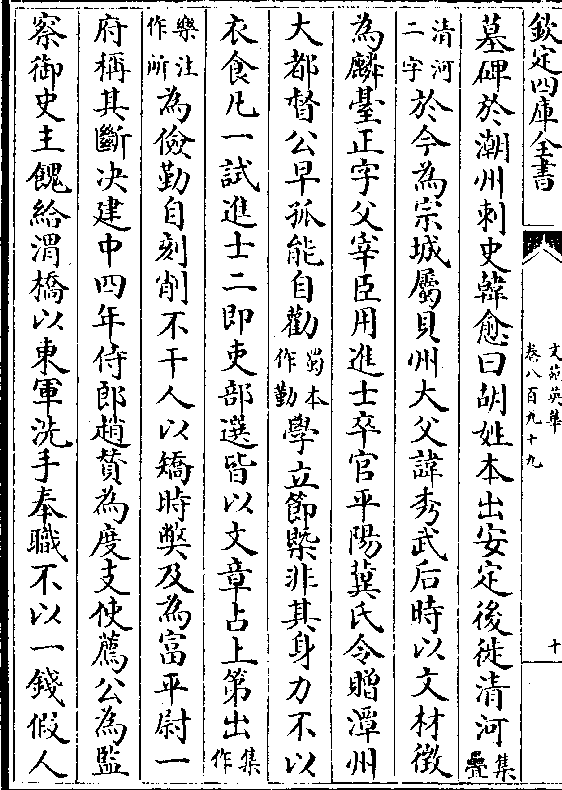 欽定四庫全書
文苑英華
卷八百九十九
十
墓碑於潮州刺史韓愈曰胡姓本出安定後徙清河集疊
清河二字於今為宗城屬貝州大父諱秀武后時以文材徵
為麟臺正字父宰臣用進士卒官平陽冀氏令贈潭州
大都督公早孤能自勸蜀本作勤學立節槩非其身力不以
衣食凡一試進士二即吏部選皆以文章占上第出集作
樂注作所為儉勤自刻削不干人以矯時弊及為富平尉一
府稱其斷决建中四年侍郎趙贊為度支使薦公為監
察御史主餽給渭橋以東軍洗手奉職不以一錢假人